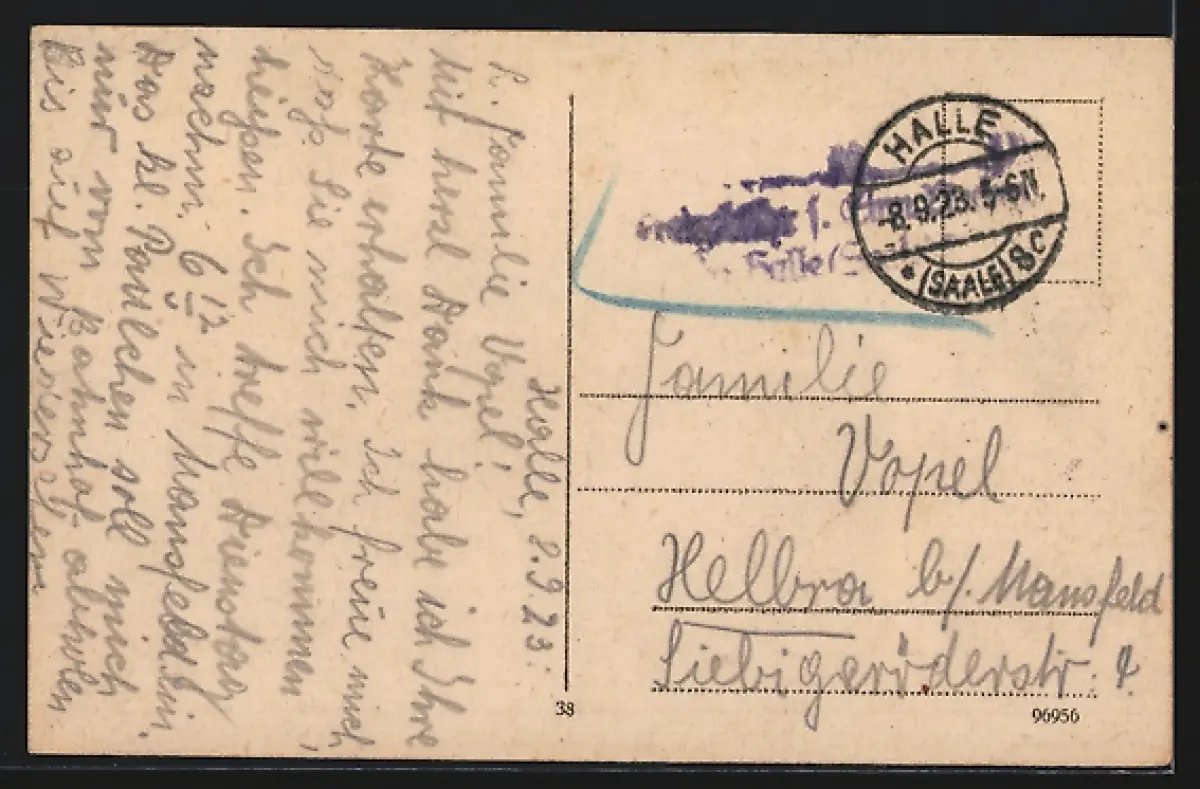 Halle, 8.9.23.
L. Familie Vopel!
Mit herzl Dank habe ich Ihre
Karte erhalten. Ich freue mich
daß Sie mich willkommen
heißen. Ich treffe Dienstag
nachm. 6 1/2 in Mansfeld ein.
Das kl. Paulchen soll mich
nur vom Bahnhof abholen
Bis auf Wiedersehn
HALLE
-8.9.23. 5-6N.
* (SAALE) 8c
f.
Halle (S
Familie
Vopel
Helbra b/. Mansfeld
Siebigeröderstr.
38
96956